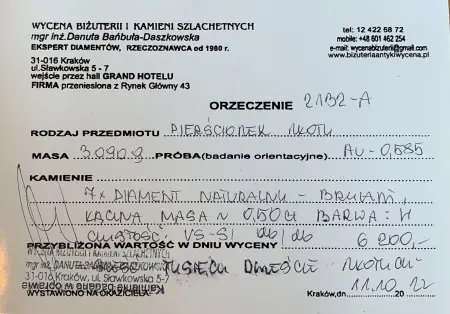 WYCENA BIŻUTERII I KAMIENI SZLACHETNYCH
mgr inż. Danuta Bańbuła-Daszkowska
EKSPERT DIAMENTÓW, RZECZOZNAWCA od 1980 r.
tel: 12 422 68 72
mobile: +48 601 462 254
e-mail: wycenabizuterii@gmail.com
www.bizuteriaantykiwycena.pl
31-016 Kraków
ul. Sławkowska 5 - 7
wejście przez hall GRAND HOTELU
FIRMA przeniesiona z Rynek Główny 43
ORZECZENIE 21B2-A
RODZAJ PRZEDMIOTU PIERŚCIONEK ZŁOTY
MASA 3,090 g PRÓBA (badanie orientacyjne) Au-0,585
KAMIENIE
7x DIAMENT NATURALNY - BRYLANT,
ŁĄCZNA MASA ~ 0,50ct BARWA: H
CZYSTOŚĆ: VS-SI db/db
PRZYBLIŻONA WARTOŚĆ W DNIU WYCENY 6 200,-
mgr inż. DANUTA
TYSIĘCY DWIEŚCIE ZŁOTYCH
31-016 Kraków, ul. Sławkowska 5-7
Kamienie badano w oprawie
WYSTAWIONO NA OKAZICIELA
Kraków, dn. 11.10.20 22